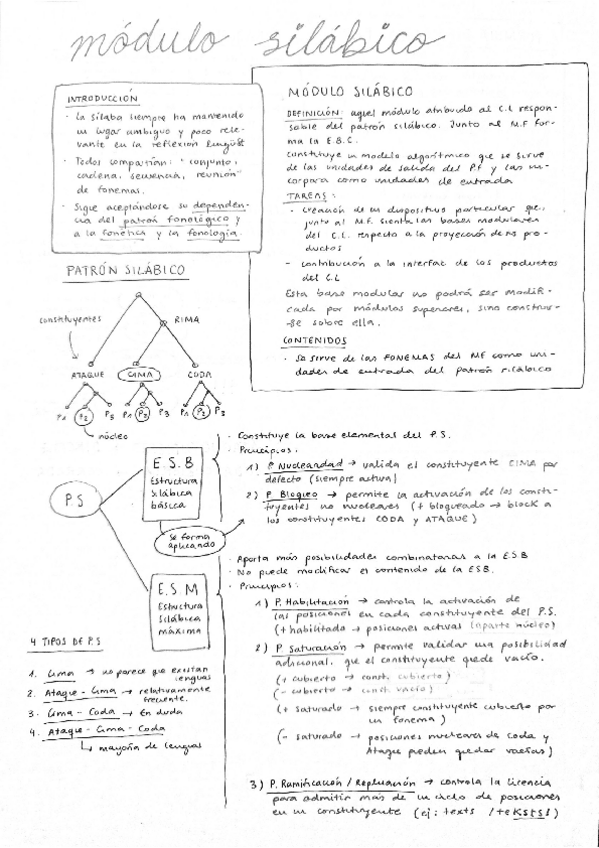 módulo silábico
INTRODUCCIÓN
· La sílaba siempre ha mantenido
un lugar ambiguo y poco rele-
vante en la reflexión lingüís
· Todos compartían: "conjunto,
cadena, secuencia, reunión"
de fonemas.
· Sigue aceptándose su dependen-
cia del patrón fonológico y
a la fonética y la fonología.
MÓDULO SILÁBICO
DEFINICIÓN: aquel módulo atribuido al C.L respon-
sable del patrón silábico. Junto al M.F for-
ma la E.B.C.
Constituye un modelo algorítmico que se sirve
de las unidades de salida del P.f y las in-
corpora como unidades de entrada
TAREAS:
- Creación de un dispositivo particular que,
junto al M.F. sienta las bases modulares
del C.L. respecto a la proyección de sus pro-
ductos
- Contribución a la interfaz de los productos
del C.L
Esta base modular no podrá ser modifi-
cada por módulos superiores, sino construir-
se sobre ella.
CONTENIDOS
· Se sirve de los FONEMAS del MF como uni-
dades de entrada del patrón silábico
PATRÓN SILÁBICO
constituyentes
RIMA
ATAQUE CIMA CODA
P1 P2 P3 P1 P2 P3 P1 P2 P3
núcleo
P.S
E.S.B
Estructura
Silábica
básica
· Constituye la base elemental del P.S.
· Principios:
1) P. Nuclearidad → valida el constituyente CIMA por
defecto (siempre activa)
2) P. Bloqueo → permite la activación de los consti-
tuyentes no nucleares (+ bloqueado → block a
los constituyentes CODA y ATAQUE)
Se forma
aplicando
E.S.M
Estructura
Silábica
máxima
· Aporta más posibilidades combinatorias a la ESB
· No puede modificar el contenido de la ESB.
· Principios:
1) P. Habilitación → controla la activación de
las posiciones en cada constituyente del P.S.
(+ habilitado → posiciones activas (aparte núcleo)
2) P. Saturación → permite validar una posibilidad
adicional, que el constituyente quede vacío.
(+ cubierto → const. cubierto)
(- cubierto → const. vacío)
(+ saturado → siempre constituyente cubierto por
un fonema)
(- saturado → posiciones nucleares de coda y
Ataque pueden quedar vacías)
3) P. Ramificación / Replicación → controla la licencia
para admitir más de un ciclo de posiciones
en un constituyente (ej: texts /teksts)
4 TIPOS DE P.S
1. Cima → no parece que existan
lenguas
2. Ataque - Cima → relativamente
frecuente.
3. Cima - Coda → En duda
4. Ataque - Cima - Coda
↳ mayoría de lenguas